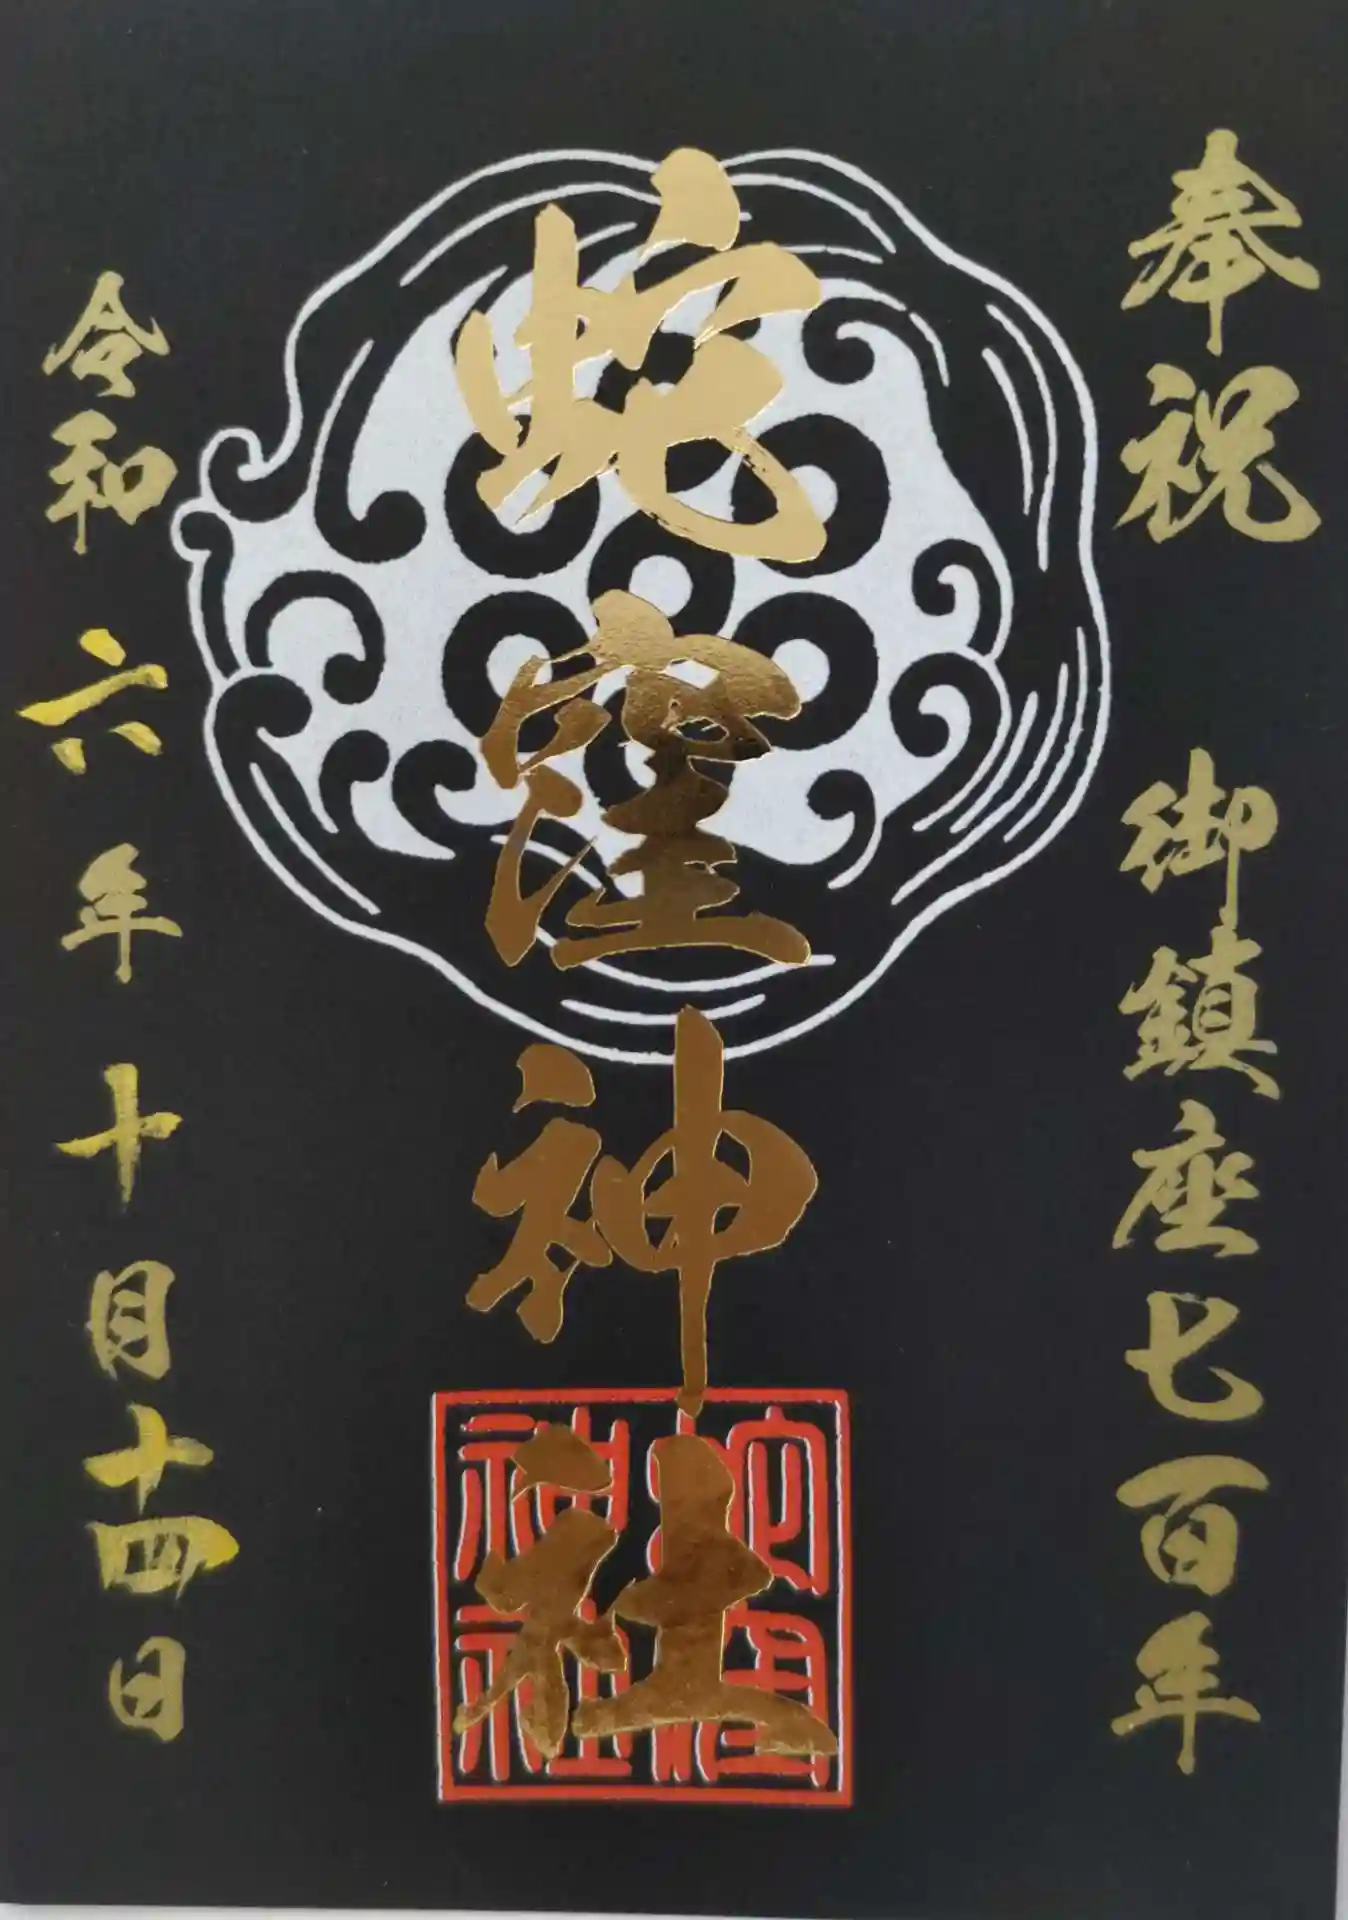 奉祝 御鎮座七百年
蛇窪神社
蛇窪
神社
令和六年十月十四日